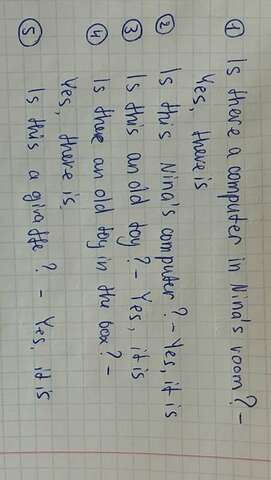 ① Is there a computer in Nina's room? –
Yes, there is
② Is this Nina's computer? – Yes, it is
③ Is this an old toy? – Yes, it is
④ Is there an old toy in the box? –
Yes, there is.
⑤ Is this a giraffe? – Yes, it is